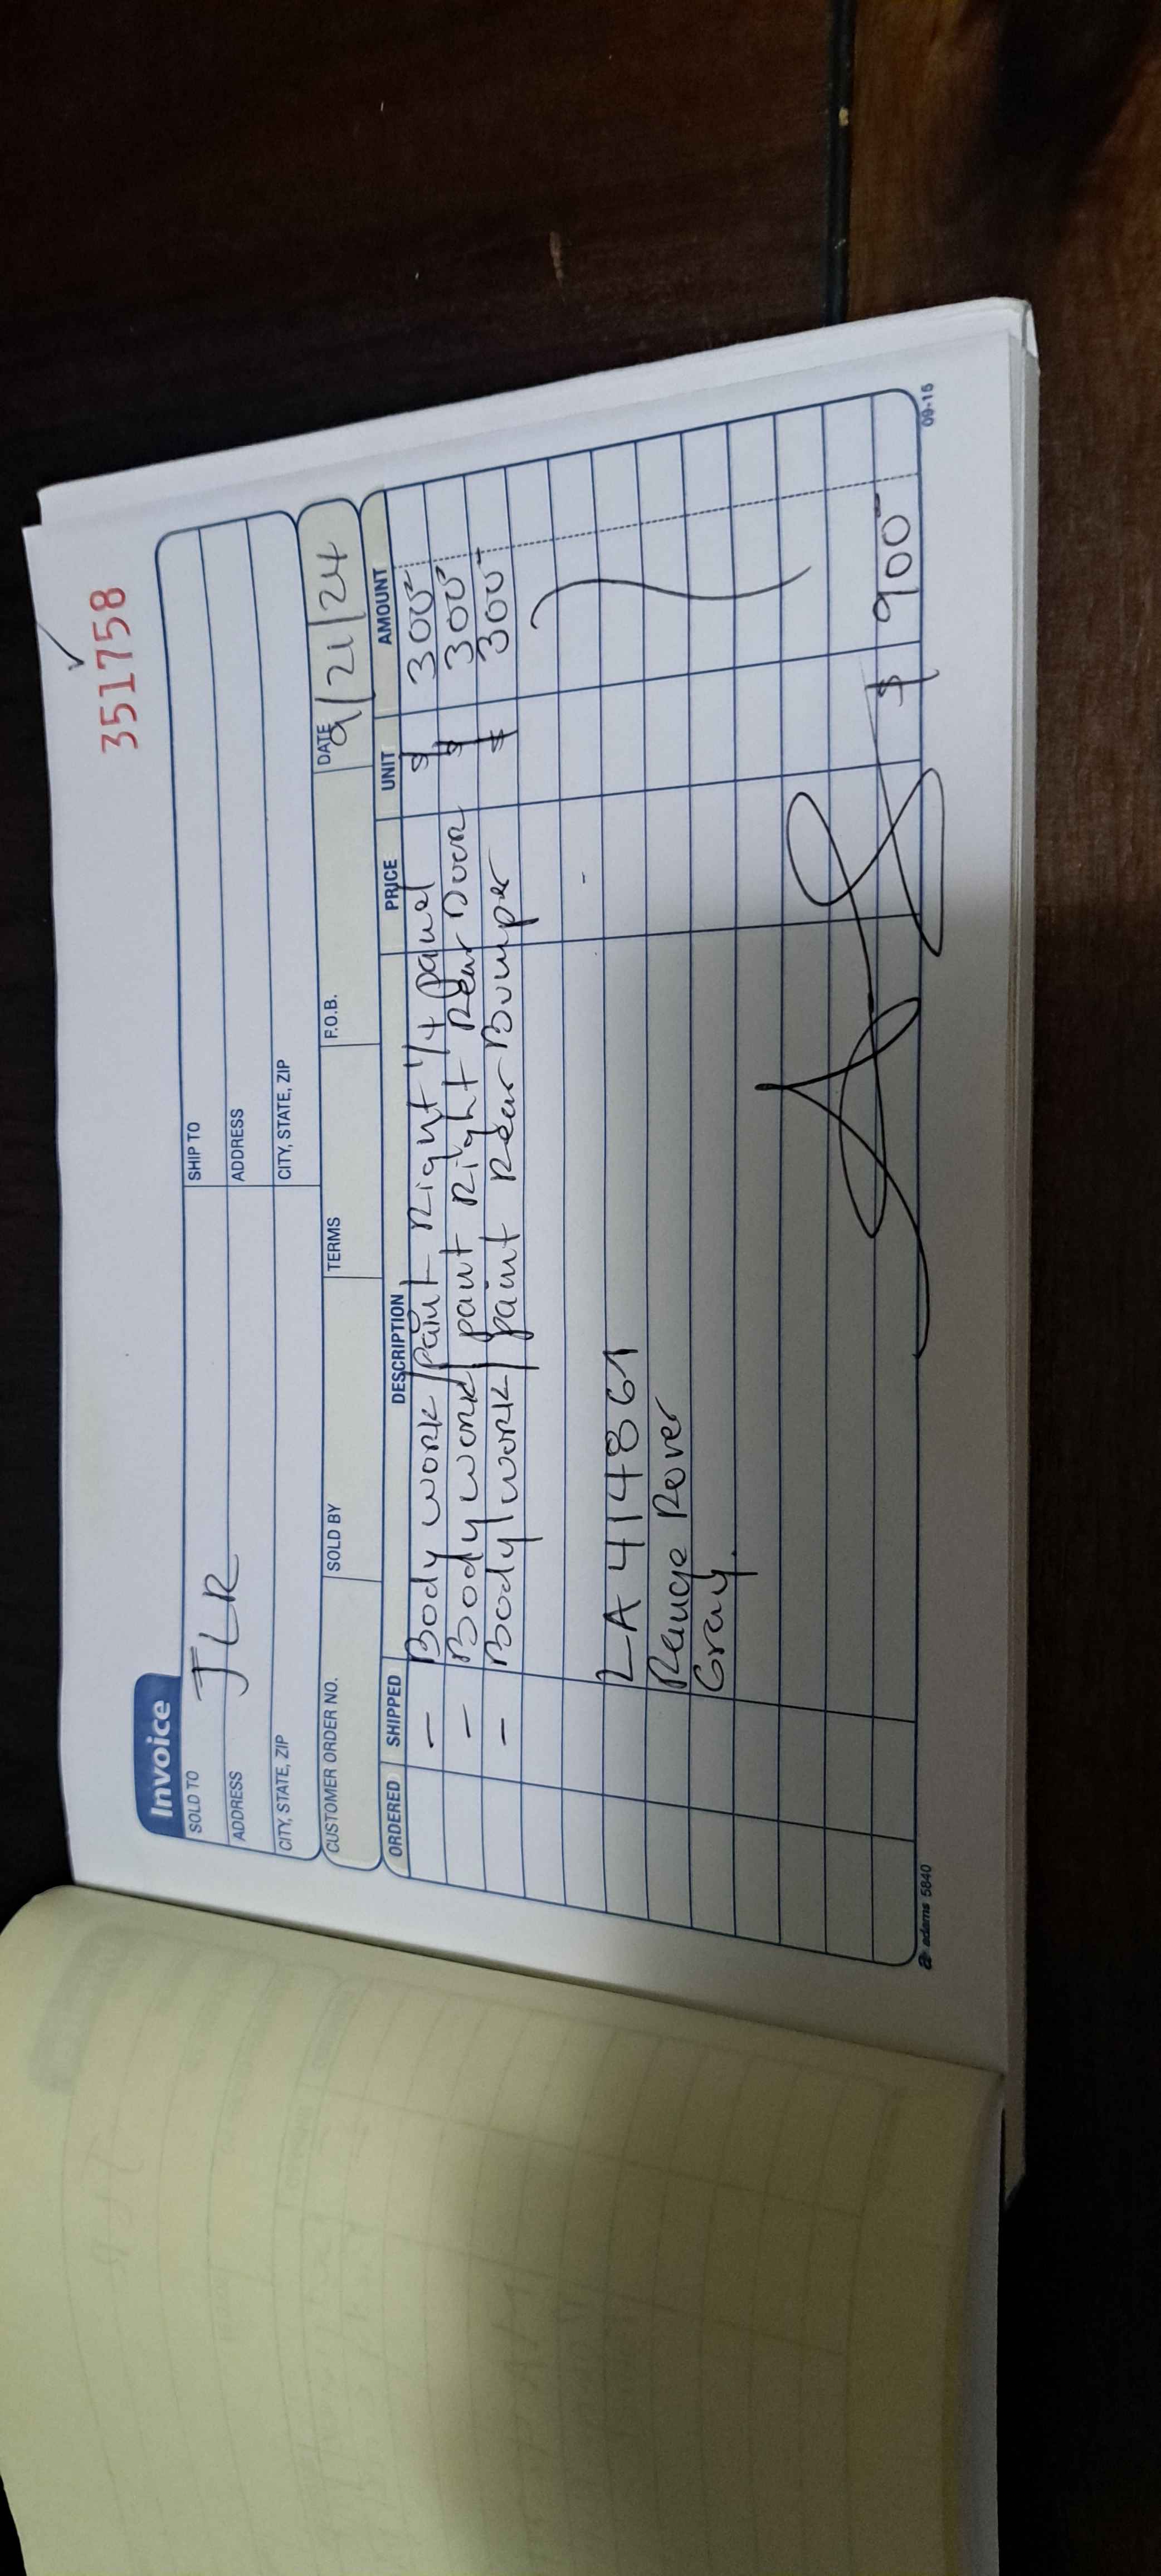 351758
Invoice
SOLD TO JLR
SHIP TO
ADDRESS
ADDRESS
CITY, STATE, ZIP
CITY, STATE, ZIP
CUSTOMER ORDER NO. SOLD BY TERMS F.O.B. DATE 9/21/24
ORDERED SHIPPED DESCRIPTION PRICE UNIT AMOUNT
- Body work/paint Right 1/4 panel $ 300-
- Body work/paint Right Rear Door $ 300-
- Body work/paint Rear Bumper $ 300-
LA 414861
Range Rover
Gray.
$ 900-
adams 5840 09-15